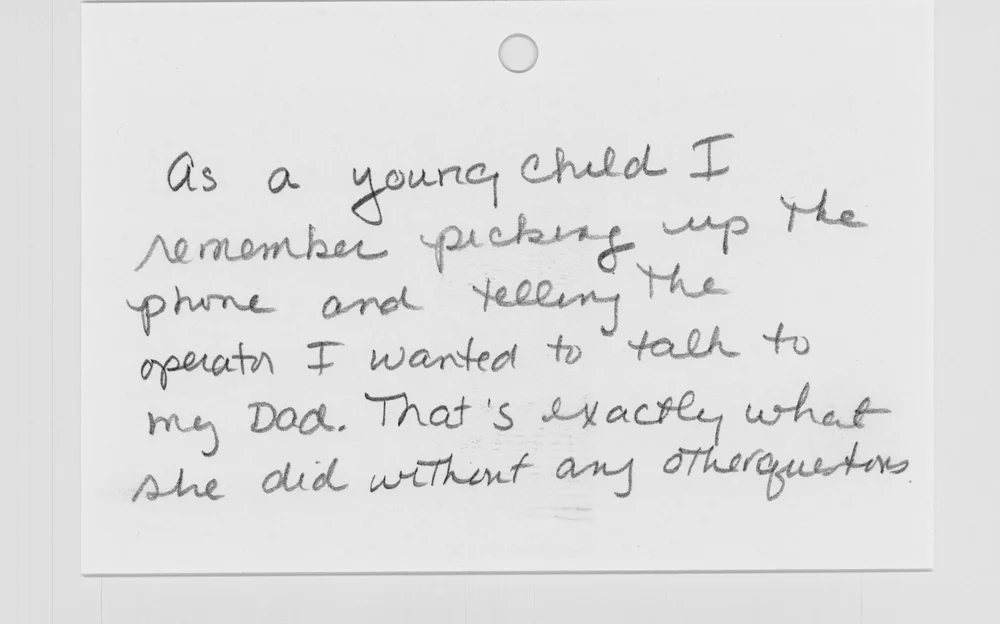 As a young child I
remember picking up the
phone and telling the
operator I wanted to talk to
my Dad. That's exactly what
she did without any other questions.